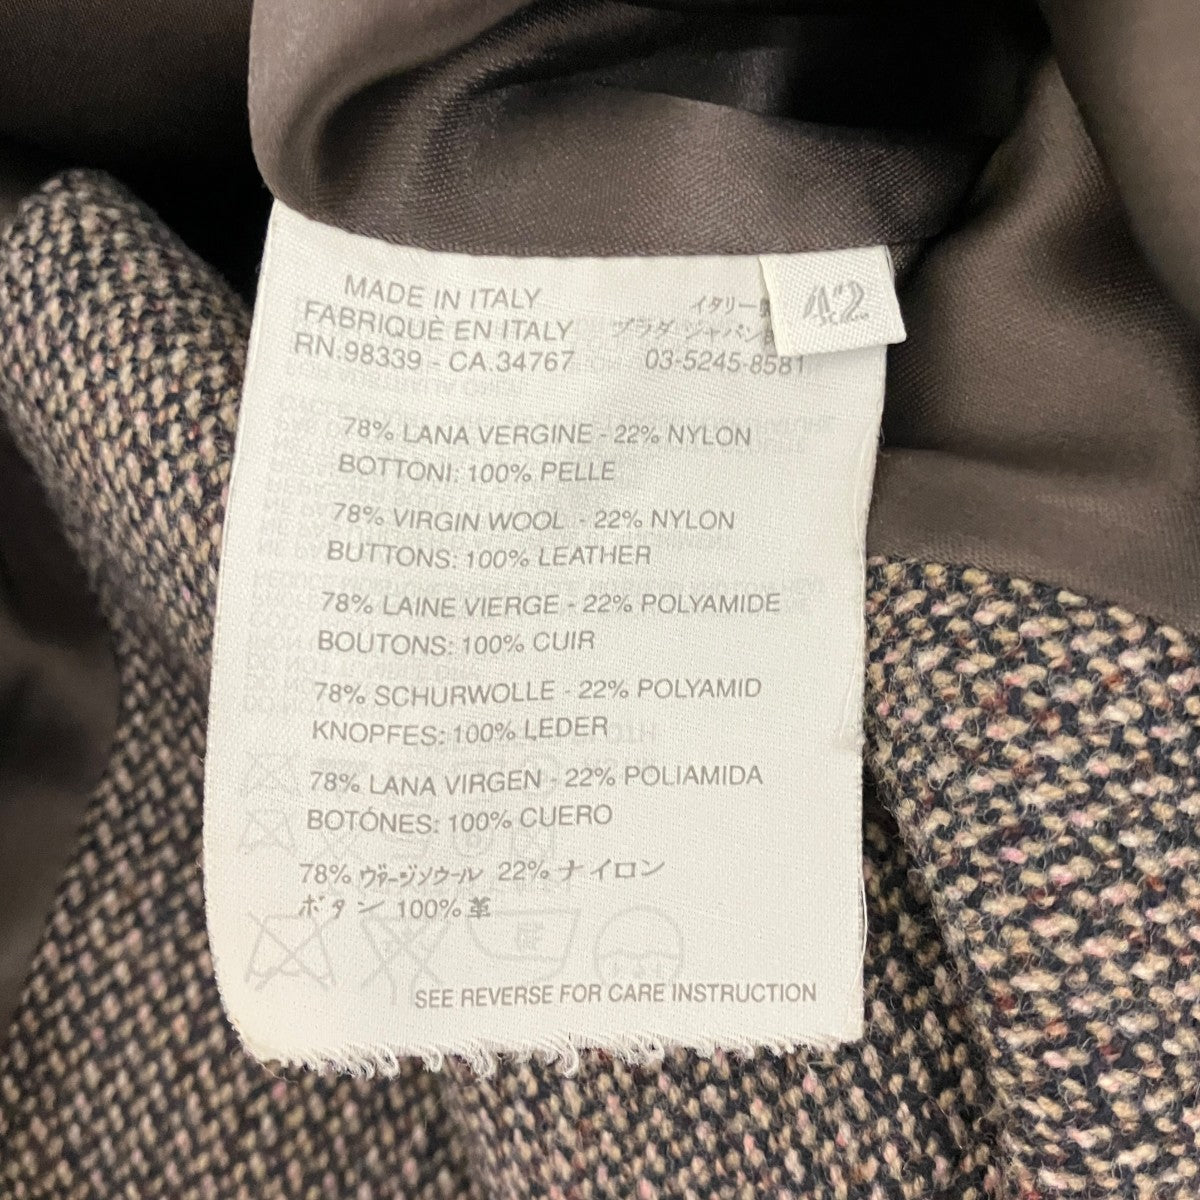 MADE IN ITALY
FABRIQUÈ EN ITALY
RN.98339 - CA.34767
イタリー
プラダ ジャパン
03-5245-8581
42
78% LANA VERGINE - 22% NYLON
BOTTONI: 100% PELLE
78% VIRGIN WOOL - 22% NYLON
BUTTONS: 100% LEATHER
78% LAINE VIERGE - 22% POLYAMIDE
BOUTONS: 100% CUIR
78% SCHURWOLLE - 22% POLYAMID
KNOPFES: 100% LEDER
78% LANA VIRGEN - 22% POLIAMIDA
BOTÓNES: 100% CUERO
78% ヴァージンウール 22% ナイロン
ボタン 100% 革
SEE REVERSE FOR CARE INSTRUCTION